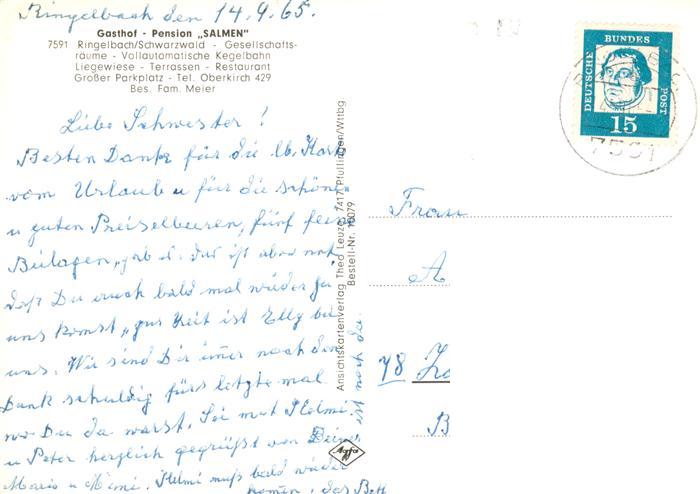 Ringelbach den 14.9.65.
Gasthof - Pension „SALMEN"
7591 Ringelbach/Schwarzwald - Gesellschafts-
räume - Vollautomatische Kegelbahn
Liegewiese - Terrassen - Restaurant
Großer Parkplatz - Tel. Oberkirch 429
Bes. Fam. Meier
Liebe Schwester!
Besten Dank für die lb. Karte
vom Urlaub u für die schönen
u guten Preiselbeeren, fünf
Beilagen gab es. das ist aber
daß Du auch bald mal wieder zu
uns komst, zur Zeit ist Elly bei
uns. Wir sind Dir imer noch den
Dank schuldig fürs letzte mal
wo Du da warst. Sei mit Helmi
u Peter herzlich gegrüßt von Deiner
Maria u Mimi. Helmi muß bald wieder
komen, das Bett
ist noch da.
Ansichtskartenverlag Theo Leuze, 7417 Pfullingen/Wttbg
Bestell-Nr. 10079
Agfa
DEUTSCHE BUNDES POST
15
7591
Frau
A
78
B